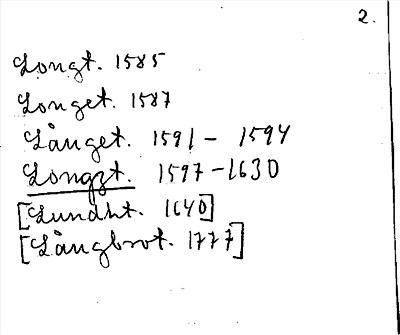 2.
Longt. 1585
Longet. 1587
Långet. 1591 - 1594
Longzt. 1597-1630
[Lundht. 1640]
[Långbrot. 1777]